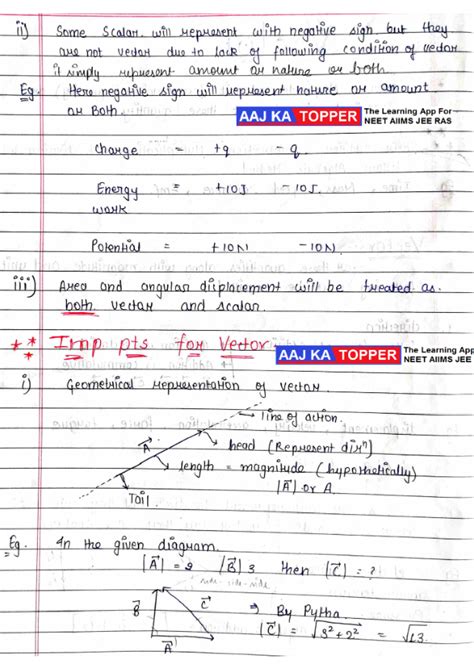 ii) Some Scalar will represent with negative sign but they
are not vector due to lack of following condition of vector
it simply represent amount or nature or both.
Eg. Here negative sign will represent nature or amount
or Both.
AAJ KA TOPPER The Learning App For
NEET AIIMS JEE RAS
Charge = +q - q.
Energy = +10J - 10J.
work
Potential = +10N -10N.
iii) Area and angular displacement will be treated as
both vector and scalar.
Imp pts for Vector
AAJ KA TOPPER The Learning App
NEET AIIMS JEE
i) Geometrical representation of vector.
line of action.
head (Represent dirⁿ)
A⃗
length = magnitude (hypothetically)
|A⃗| or A.
Tail
Eg. In the given diagram.
|A⃗| = 2 |B⃗| 3 then |C⃗| = ?
B⃗ C⃗ ⇒ By Pytha.
A⃗ |C⃗| = √3²+2² = √13.